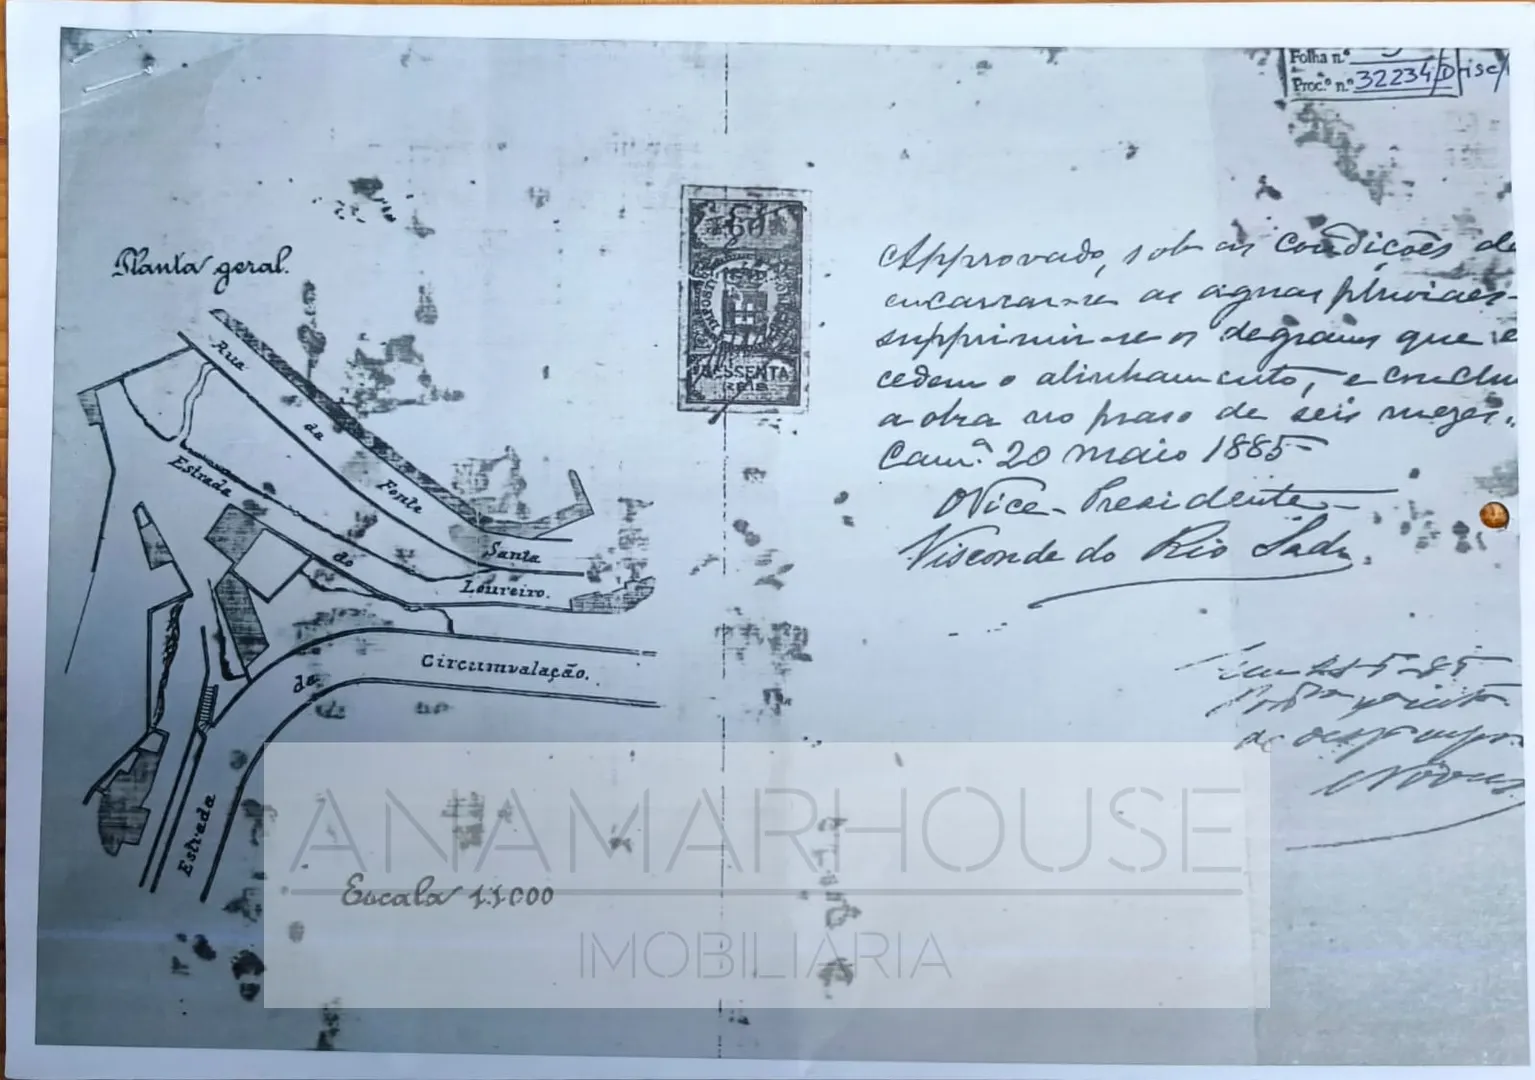 Folha n.º
Proc.º n.º 32234/D
Planta geral.
60
SESSENTA
REIS
Approvado, sob as condições de
encarrar-se as aguas pluviaes
supprimir-se os degraus que
cedem o alinhamento, e conclu
a obra no praso de seis mezes.
Cam.ª 20 maio 1885
O Vice-Presidente
Visconde do Rio Sado
Rua da Fonte Santa
Estrada do Loureiro.
Estrada da Circumvalação.
ANAMARHOUSE
Escala 1:1000
IMOBILIÁRIA